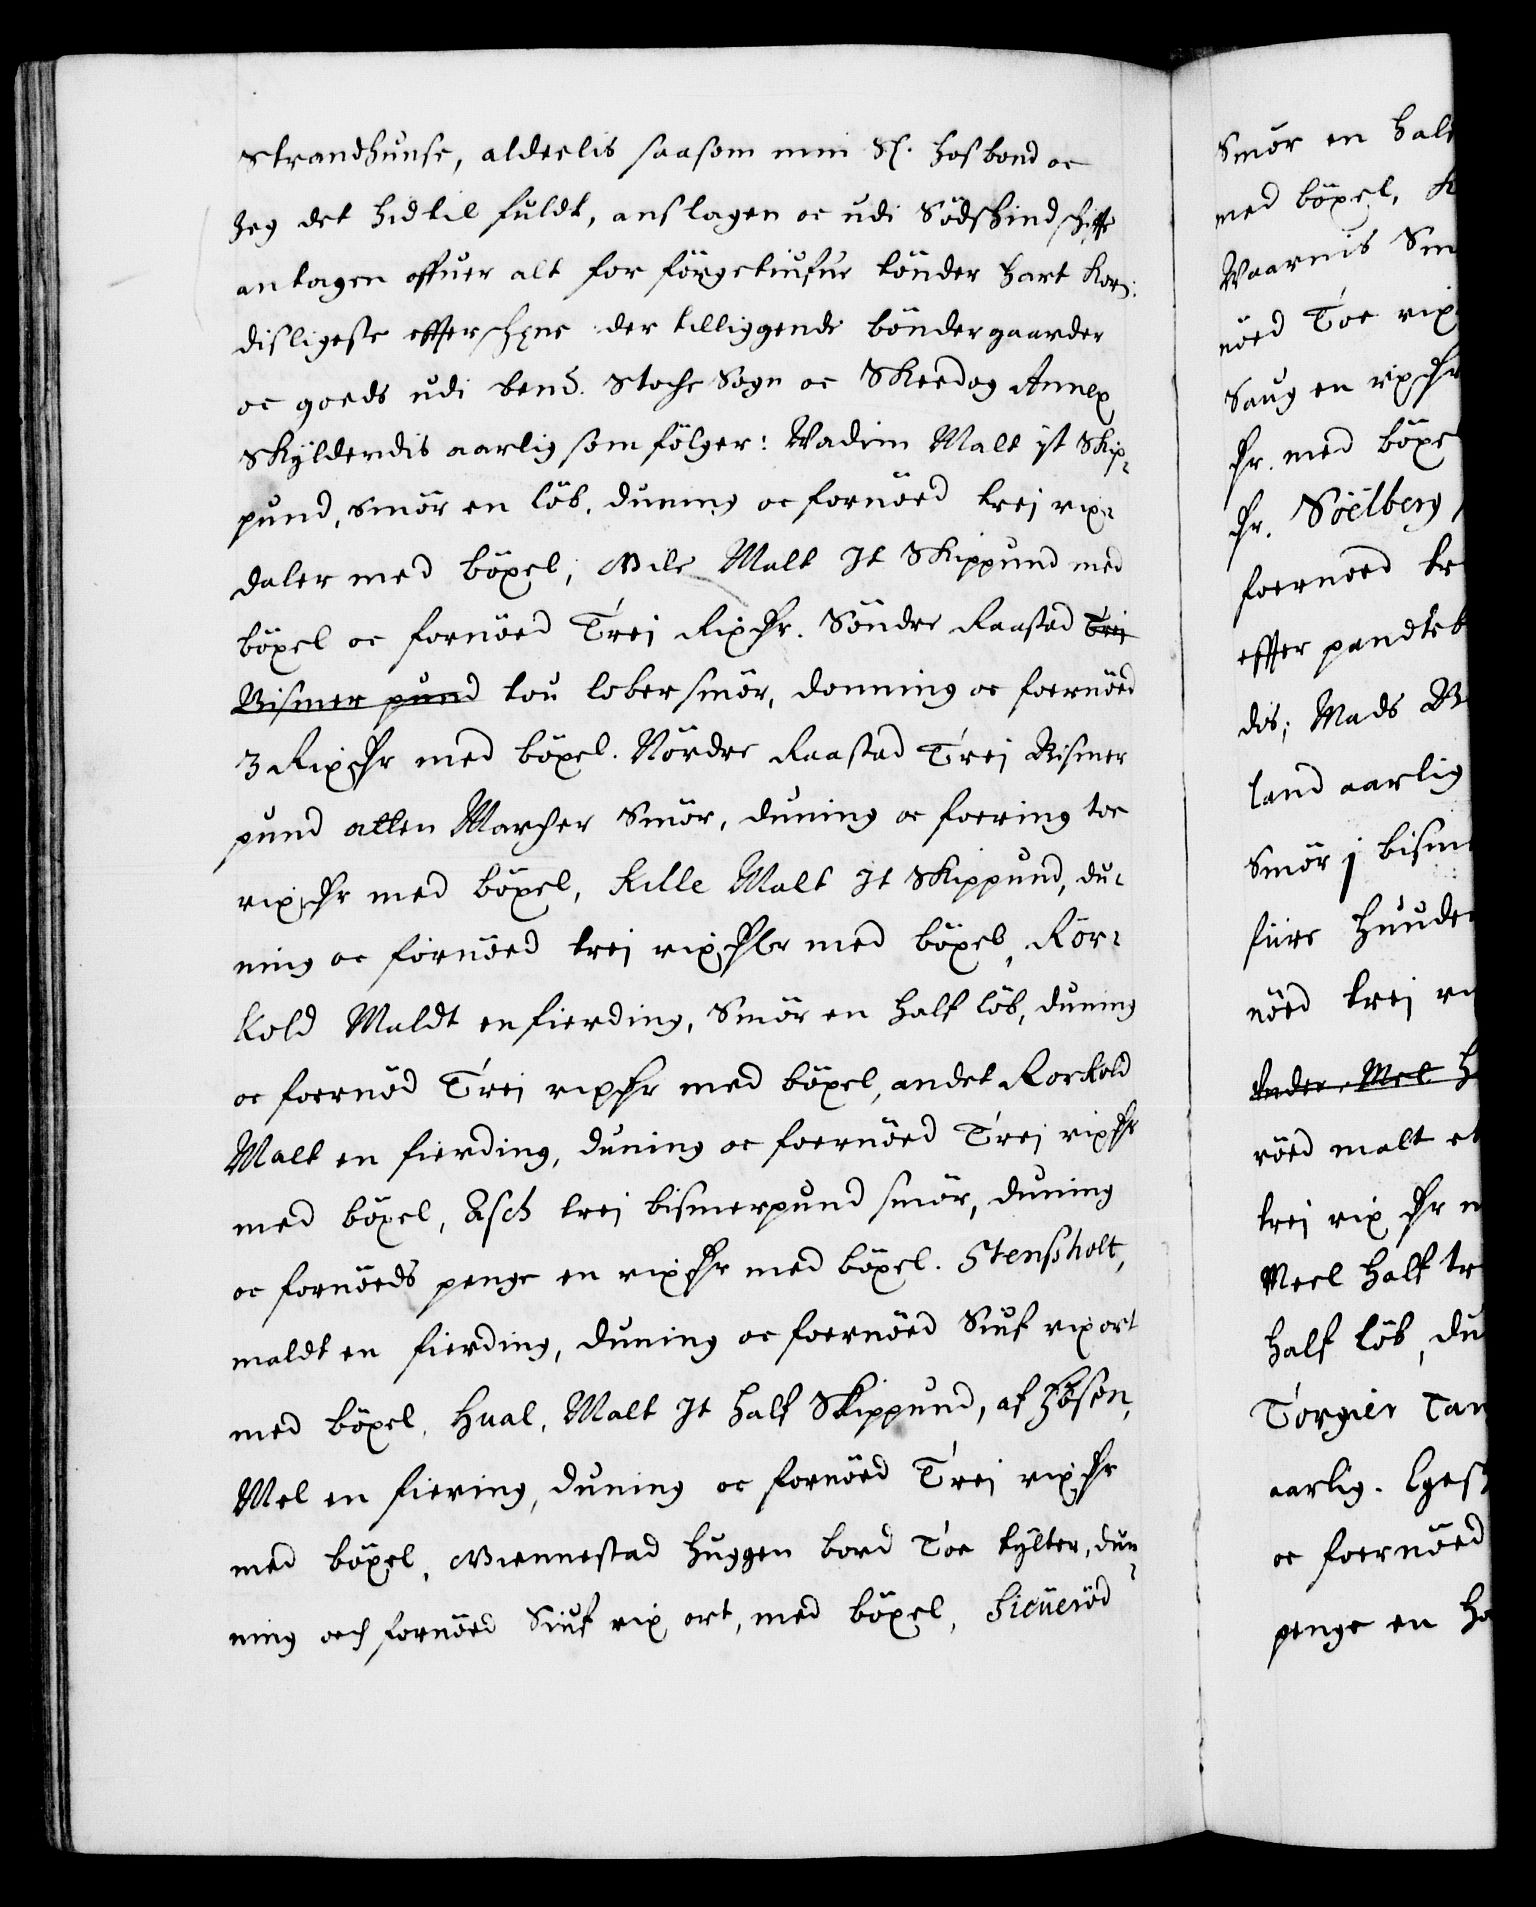 Strandhunse, alderlis saasom min Sl. Hosbond oc
Jeg det hidtil fuldt, anslagen oc udi Södskind
antagen offuer alt for förgetiufue tönder hart Korn.
disligeste effterschrne der tilliggende böndergaarder
oc goeds udi bend. Stoche Sogn oc Skeedog Annex
Skÿlderdis aarlig som fölger: Wadim Malt it Skip-
pund, smör en löb, duning oc fornöed trej rix-
daler med böxel, Bile Malt It Skippund med
böxel oc fornöed Trej Rixdr. Söndre Raastad Trej
Bismer pund tou lober smör, donning oc foernöed
3 Rixdr med böxel. Nördre Raastad Trej Bismer
pund atten Marcher Smör, duning oc foering toe
rixdr med böxel, Kille Malt It Skippund, du-
ning oc förnöed trej rixdlr med böxel, Rör-
kold Maldt en fierding, Smör en half löb, duning
oc foernöd Trej rixdr med böxel, andet Rorkold
Malt en fierding, duning oc foernöed Trej rixdr
med böxel, Asch trej bismerpund smör, duning
oc fornöeds penge en rixdr med böxel. Stensholt,
maldt en fierding, duning oc foernöed Siuf rixort
med böxel, Hual, Malt It half Skippund, af Hösön,
Mel en fiering, duning oc fornöed Trej rixdr
med böxel, Biennestad huggen bord Toe tÿlter, dun-
ning och fornöed Siuf rix ort, med böxel, Sieueröd
Smör en half
med böxel, K
Waarnis Sm
nöed Toe rix
Saug en rixdr
dr. med böxe
dr. Söelberg
foernoed tr
effter pandteb
dis; Mads B
land aarlig
Smör j bism
fiire Hunde
nöed trej ri
Anden Mel H
röed malt et
trej rix dr m
Meel half tr
half löb, du
Torgier Tan
aarlig. Eges
oc foernöed
penge en Ha